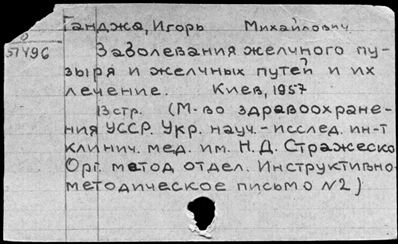 Ганджа, Игорь Михайлович
57496
Заболевания желчного пу-
зыря и желчных путей и их
лечение. Киев, 1957
13 стр. (М-во здравоохране-
ния УССР. Укр. науч.-исслед. ин-т
клинич. мед. им. Н.Д. Стражеско
Орг. метод отдел. Инструктивно-
методическое письмо №2)